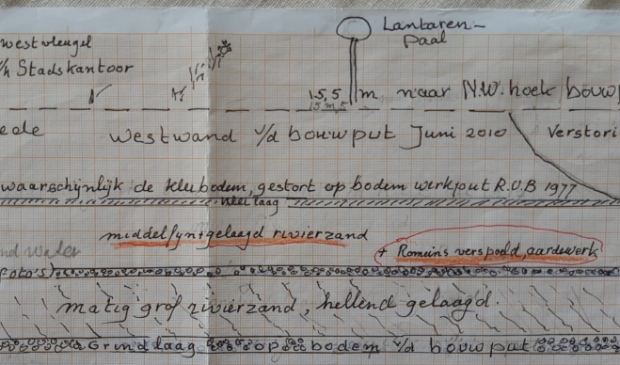 westvleugel
Lantaren-
paal
v/h Stadskantoor
15,5 m naar N.W. hoek bouwp
15 m, 5
westwand v/d bouwput Juni 2010 Verstori
waarschijnlijk de kleibodem, gestort op bodem werkput R.O.B 1977
klei laag
middelfijn gelaagd rivierzand
+ Romeins verspoeld, aardewerk
foto's)
matig grof rivierzand, hellend gelaagd.
Grind laag op bodem v/d bouwput